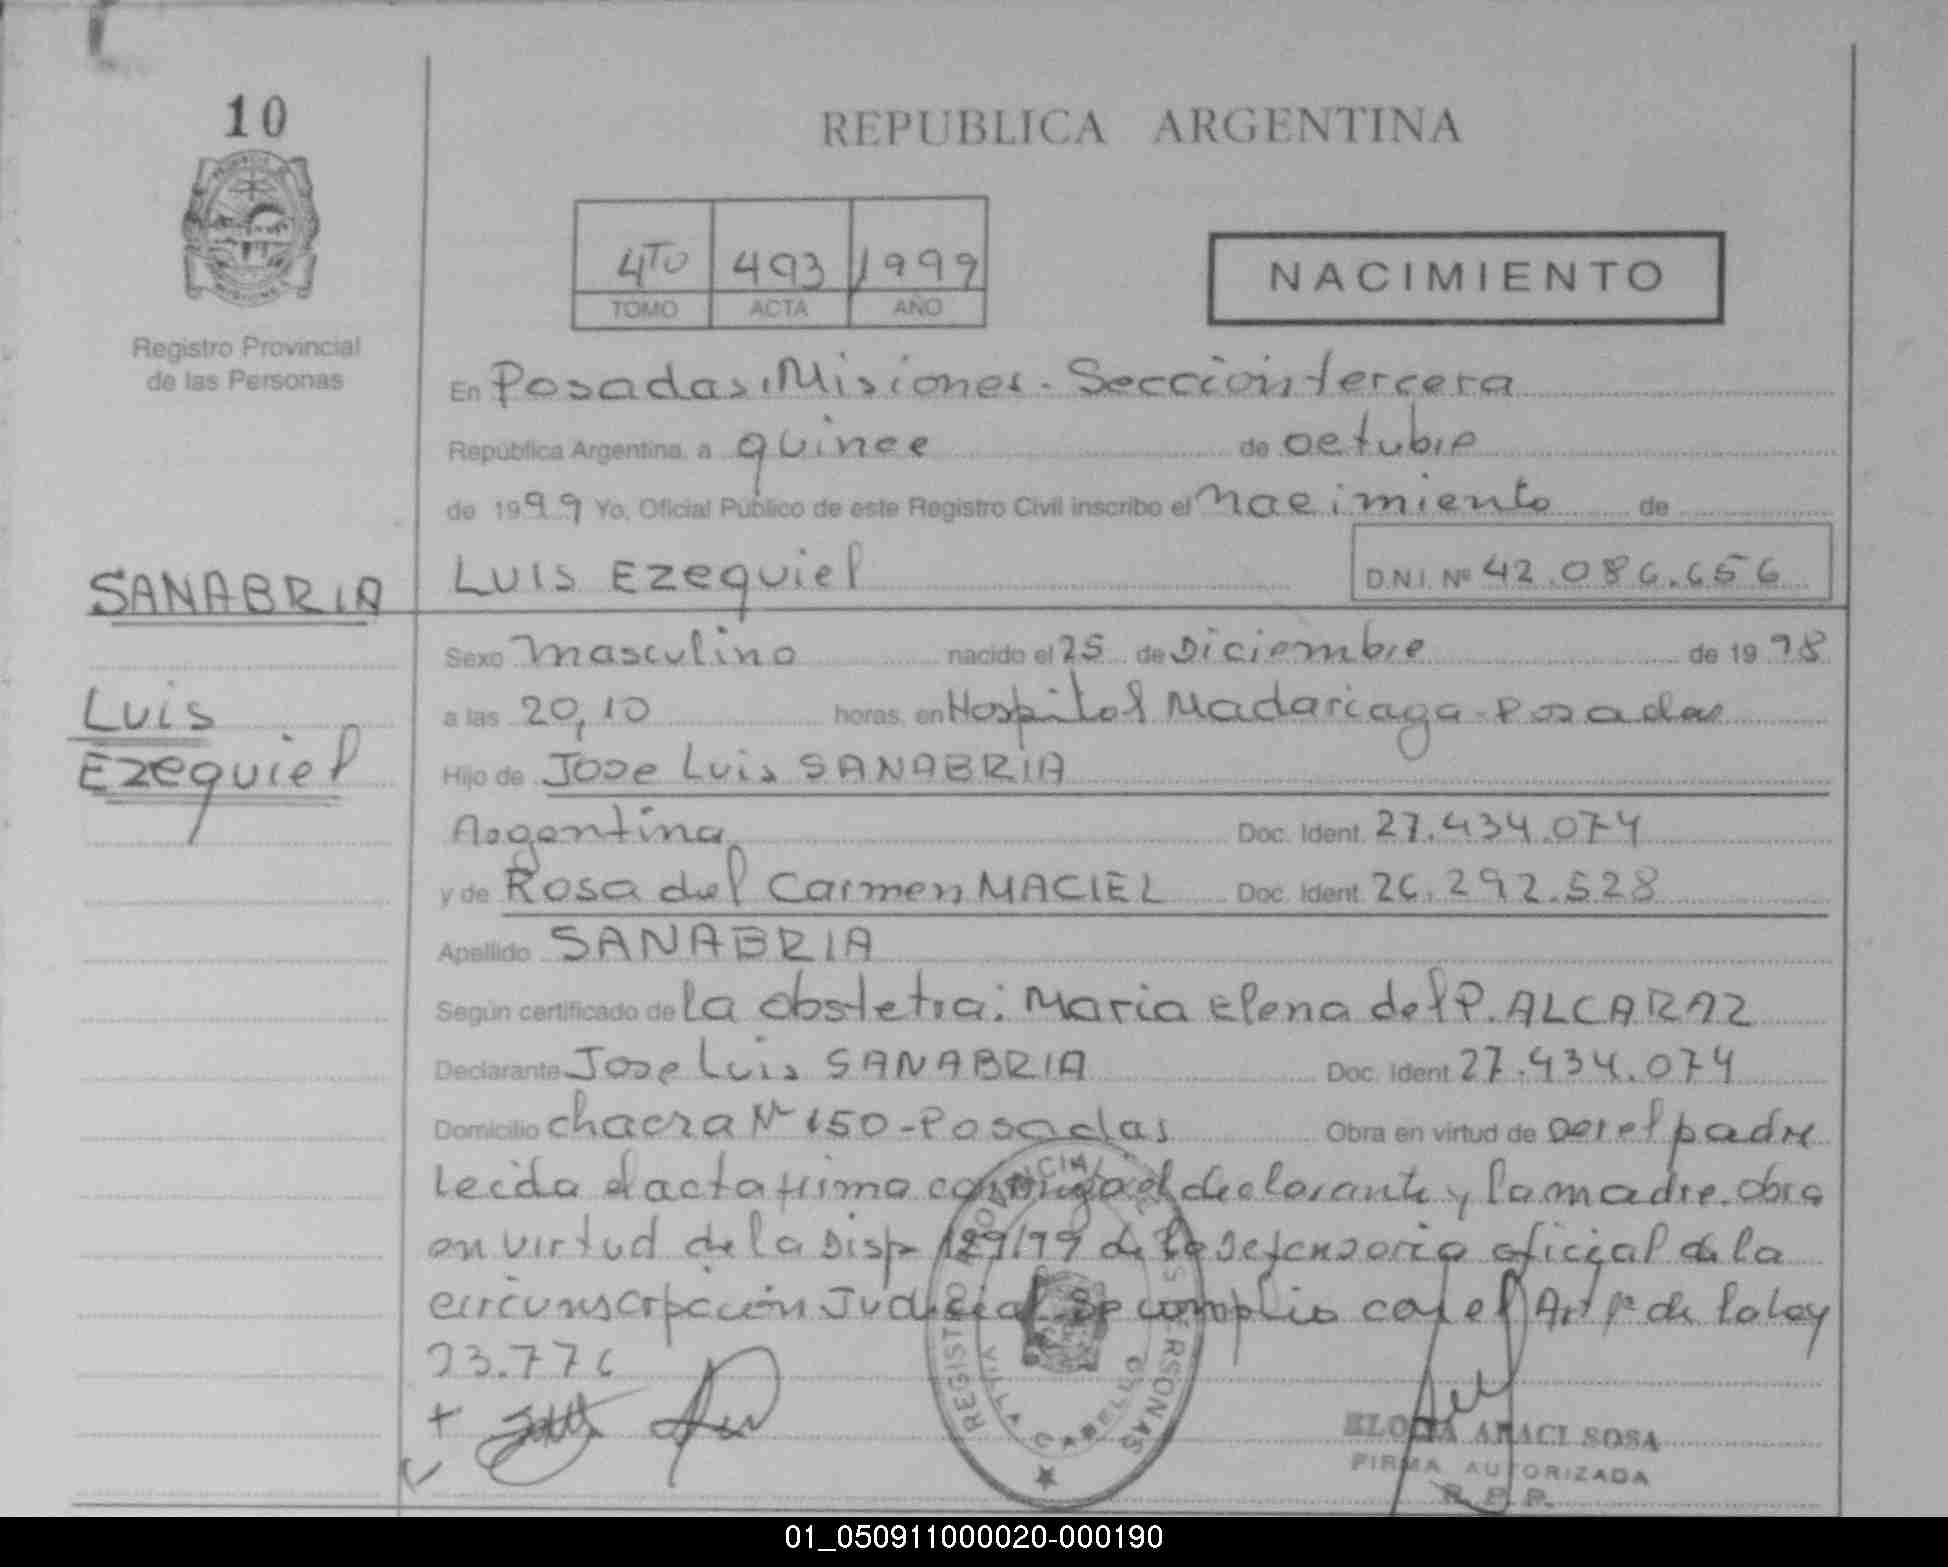 10
REPUBLICA ARGENTINA
4TO 493 1999
TOMO ACTA AÑO
NACIMIENTO
Registro Provincial
de las Personas
En Posadas, Misiones - Seccion tercera
República Argentina, a quince de octubre
de 1999 Yo, Oficial Público de este Registro Civil inscribo el Nacimiento de
LUIS EZequiel D.N.I. Nº 42.086.656
SANABRIA
Luis
EZequiel
Sexo masculino nacido el 25 de Diciembre de 1998
a las 20,10 horas, en Hospital Madariaga - Posadas
Hijo de Jose Luis SANABRIA
Argentina Doc. Ident. 27.434.074
y de Rosa del Carmen MACIEL Doc. Ident. 26.292.528
Apellido SANABRIA
Según certificado de la obstetra: Maria Elena del P. ALCARAZ
Declarante Jose Luis SANABRIA Doc. Ident. 27.434.074
Domicilio chacra Nº 150 - Posadas Obra en virtud de ser el padre
Leida el acta firma conmigo el declarante y la madre. obra
en virtud de la Disp 129/99 de la Defensoria oficial de la
circunscripcion Judicial se complio con el Art 1º de la ley
23.776
REGISTRO PROVINCIAL DE LAS PERSONAS
VILLA CABELLO
ELODIA ARACI SOSA
FIRMA AUTORIZADA
R. P. P.
01_050911000020-000190